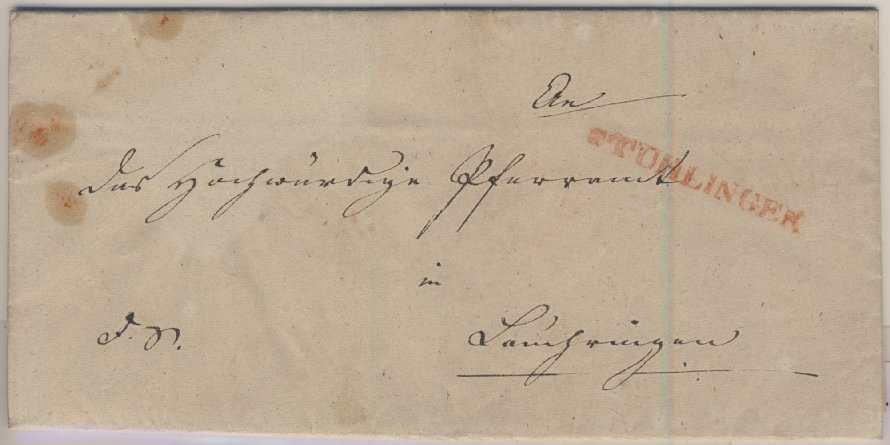 An
STUEHLINGEN
das Hochwürdige Pfarramt
in
D. S.
Lauchringen